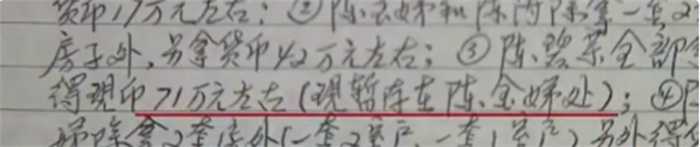 货币17万元左右；②陈金娣和陈丙除拿一套2
房子外，另拿货币42万元左右；③陈碧英全部
得现币71万元左右（现暂存在陈金娣处）；④
娣除拿2套房外（一套2室户，一套1室户）另外得